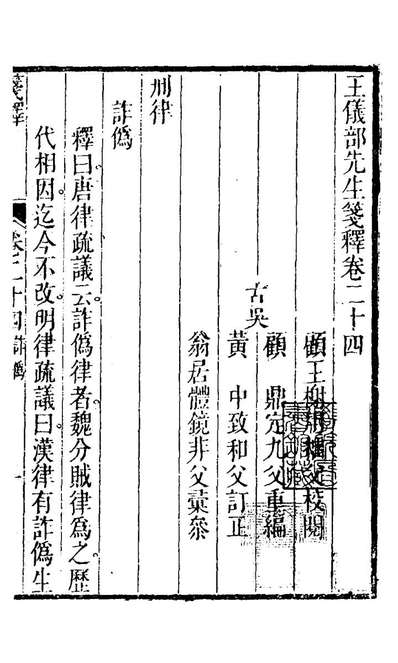 王儀部先生箋釋卷二十四
顧　鼎定九父重編
古吳
黃　中致和父訂正
翁居體鏡非父彙叅
刑律
詐僞
釋曰唐律疏議云詐僞律者魏分賊律爲之歷
代相因迄今不改明律疏議曰漢律有詐僞生
箋釋　卷二十四詐僞　一